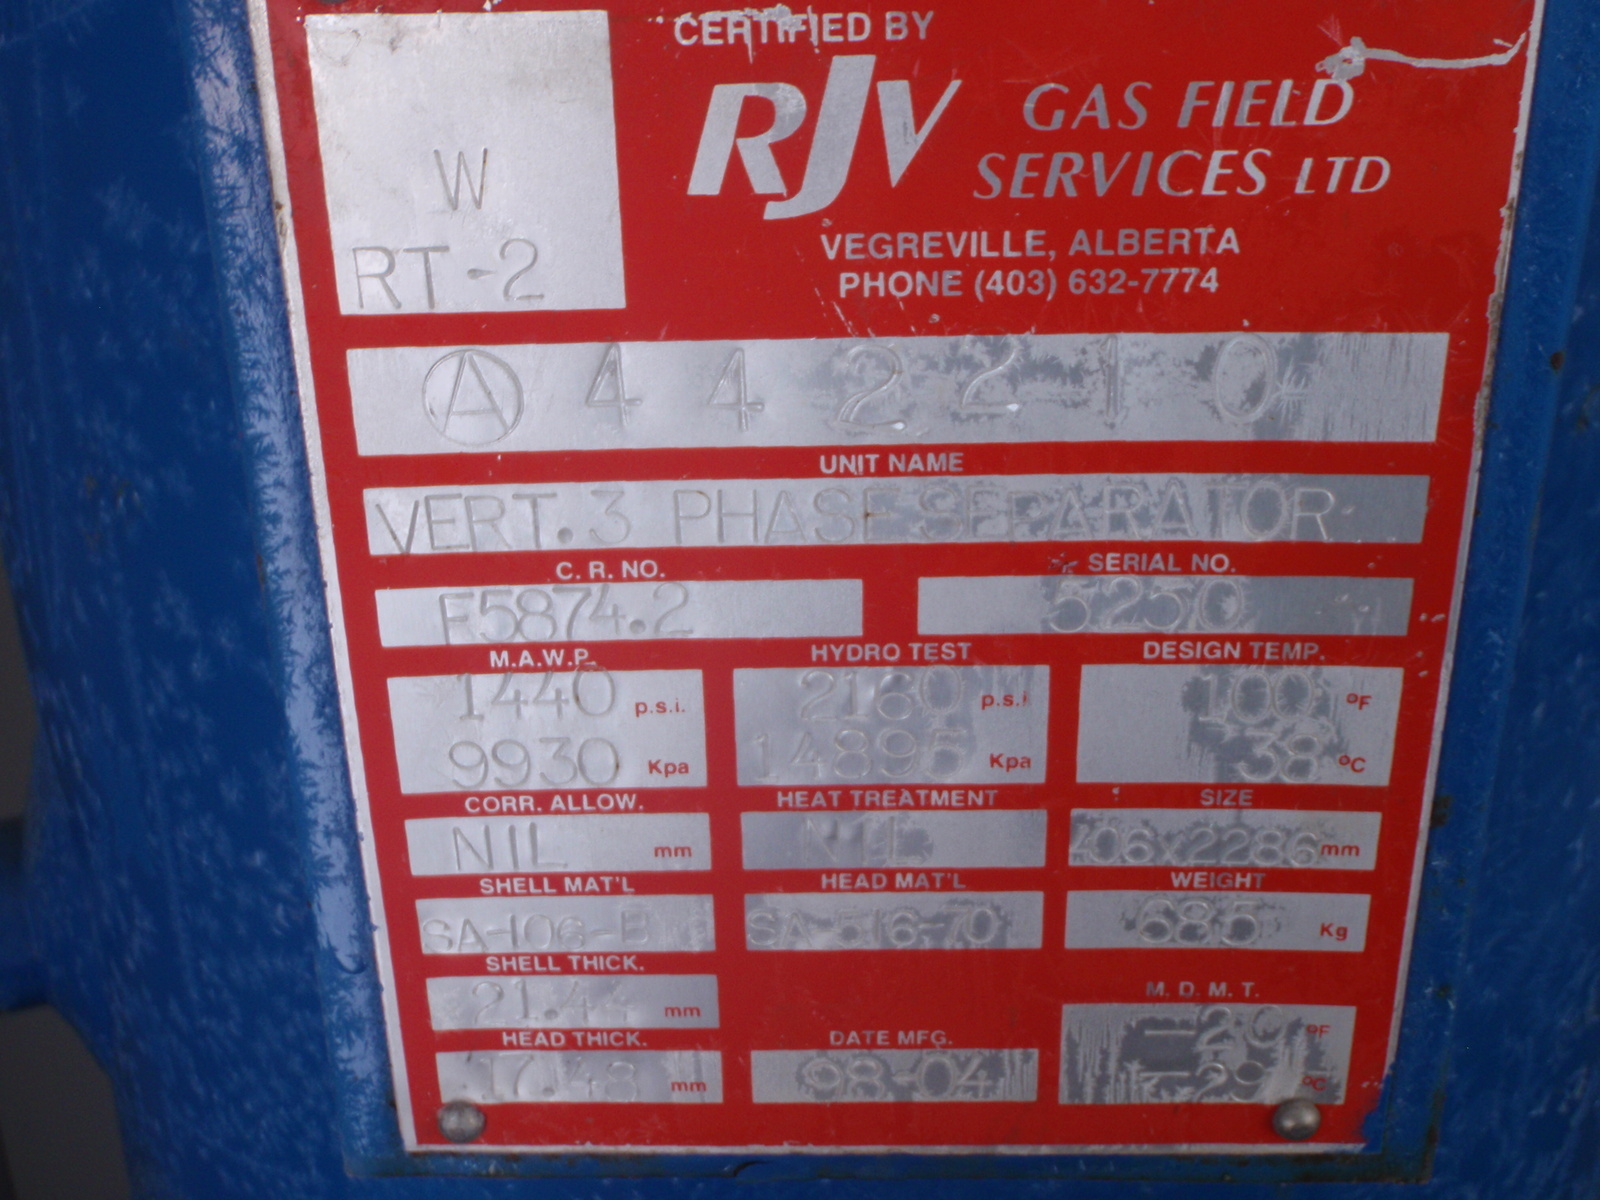 CERTIFIED BY
RJV GAS FIELD
SERVICES LTD
VEGREVILLE, ALBERTA
PHONE (403) 632-7774
W
RT-2
Ⓐ 442210
UNIT NAME
VERT. 3 PHASE SEPARATOR
C. R. NO. SERIAL NO.
F5874.2 5250
M.A.W.P. HYDRO TEST DESIGN TEMP.
1440 p.s.i. 2160 p.s.i 100 °F
9930 Kpa 14895 Kpa 38 °C
CORR. ALLOW. HEAT TREATMENT SIZE
NIL mm NIL 406x2286 mm
SHELL MAT'L HEAD MAT'L WEIGHT
SA-106-B SA-516-70 685 Kg
SHELL THICK. M. D. M. T.
21.44 mm -20 °F
HEAD THICK. DATE MFG.
17.48 mm 98-04 -29 °C